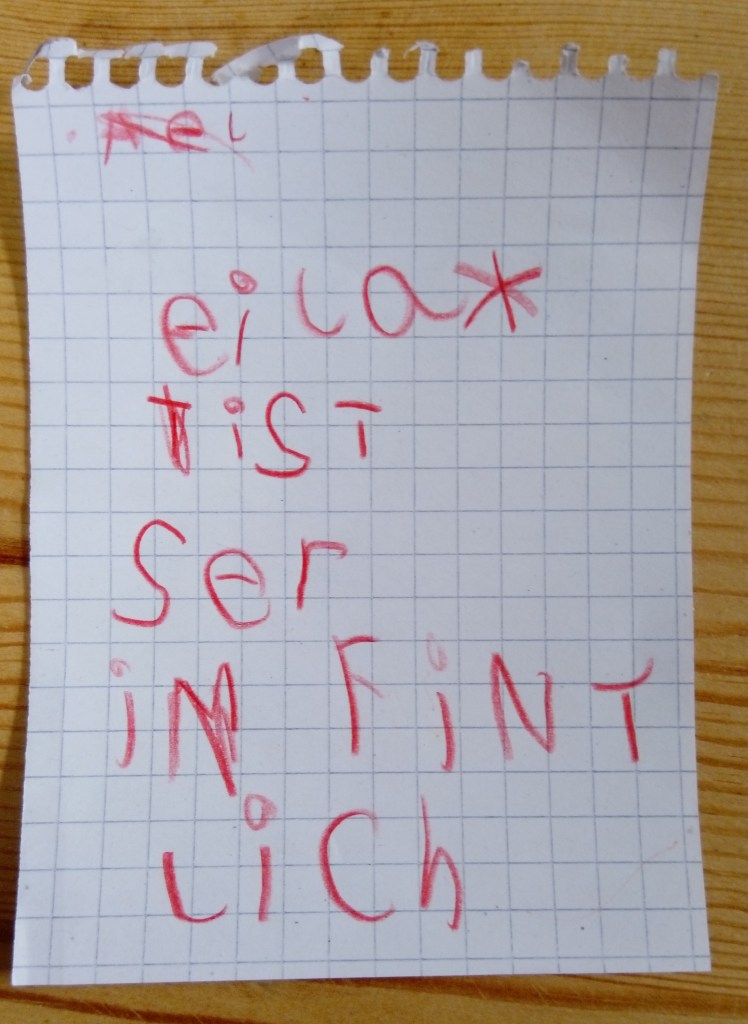 eila*
TiST
Ser
iM FiNT
LiCh